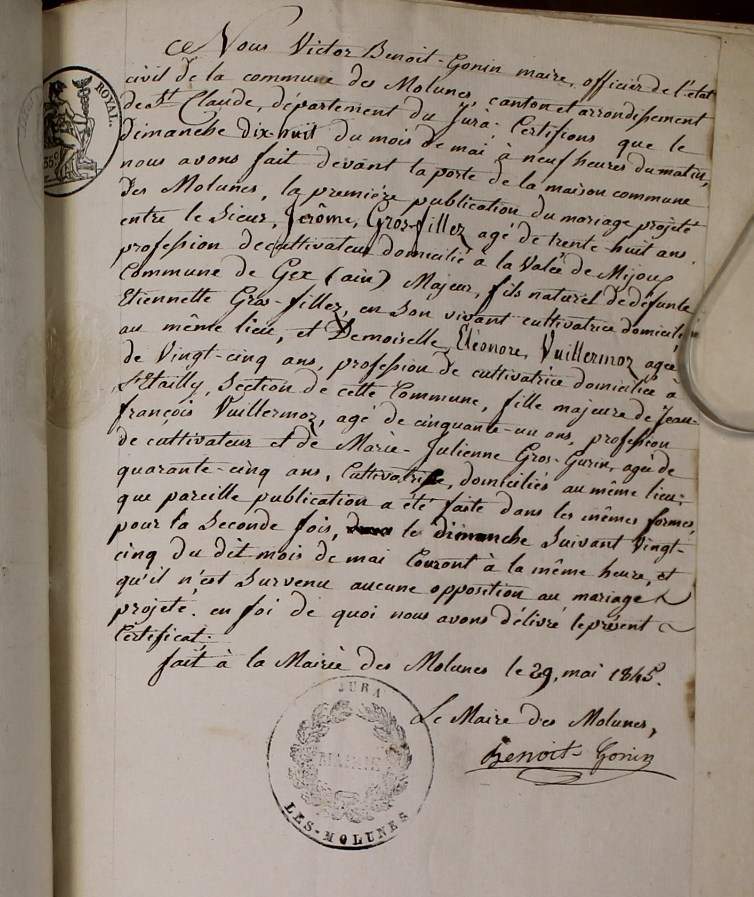 ce Nous Victor Benoit-Gonin maire, officier de l'état
civil de la commune des Molunes, canton et arrondissement
de St Claude, département du Jura; Certifions que le
dimanche dix-huit du mois de mai à neuf heures du matin,
nous avons fait devant la porte de la maison commune
des Molunes, la première publication du mariage projeté
entre le Sieur, Jérôme, Gros-fillez agé de trente huit ans.
profession de cultivateur domicilié à la Valée de Mijoux
Commune de Gex (ain) Majeur, fils naturel de défunte
Etiennette Gros-fillez, en son vivant cultivatrice domicilié
au même lieu, et Demoiselle, Eléonore, Vuillermoz agée
de Vingt-cinq ans, profession de cultivatrice domiciliée à
l'Etailly, Section de cette Commune, fille majeure de Jean-
françois Vuillermoz, agé de cinquante-un ans, profession
de cultivateur et de Marie-Julienne Gros-Gurin, agée de
quarante-cinq ans, Cultivatrice, domiciliés au même lieu;
que pareille publication a été faite dans les mêmes formes,
pour la seconde fois, le dimanche suivant Vingt-
cinq du dit mois de mai Courant à la même heure, et
qu'il n'est survenu aucune opposition au mariage
projeté. en foi de quoi nous avons délivré le présent
Certificat.
fait à la Mairie des Molunes le 29, mai 1845.
Le Maire des Molunes,
Benoit-Gonin
ROYAL.
35c
JURA
MAIRIE
LES-MOLUNES